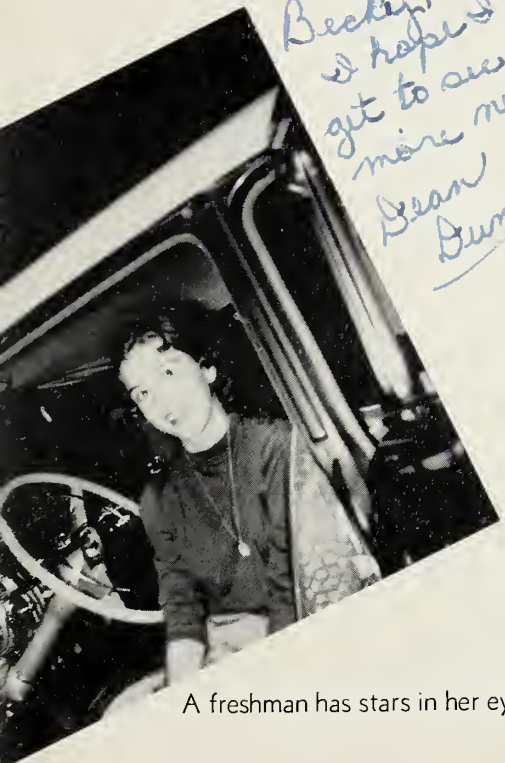 Becky,
I hope I
get to see
more
Dean
A freshman has stars in her ey